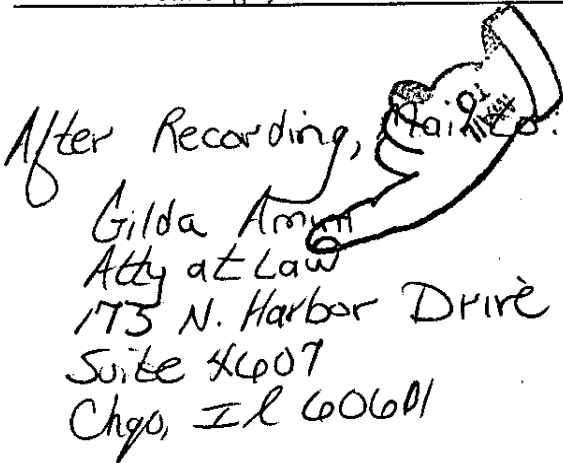 After Recording, Mail to:
Gilda
Atty at Law
175 N. Harbor Drive
Suite 4607
Chgo, Il 60601